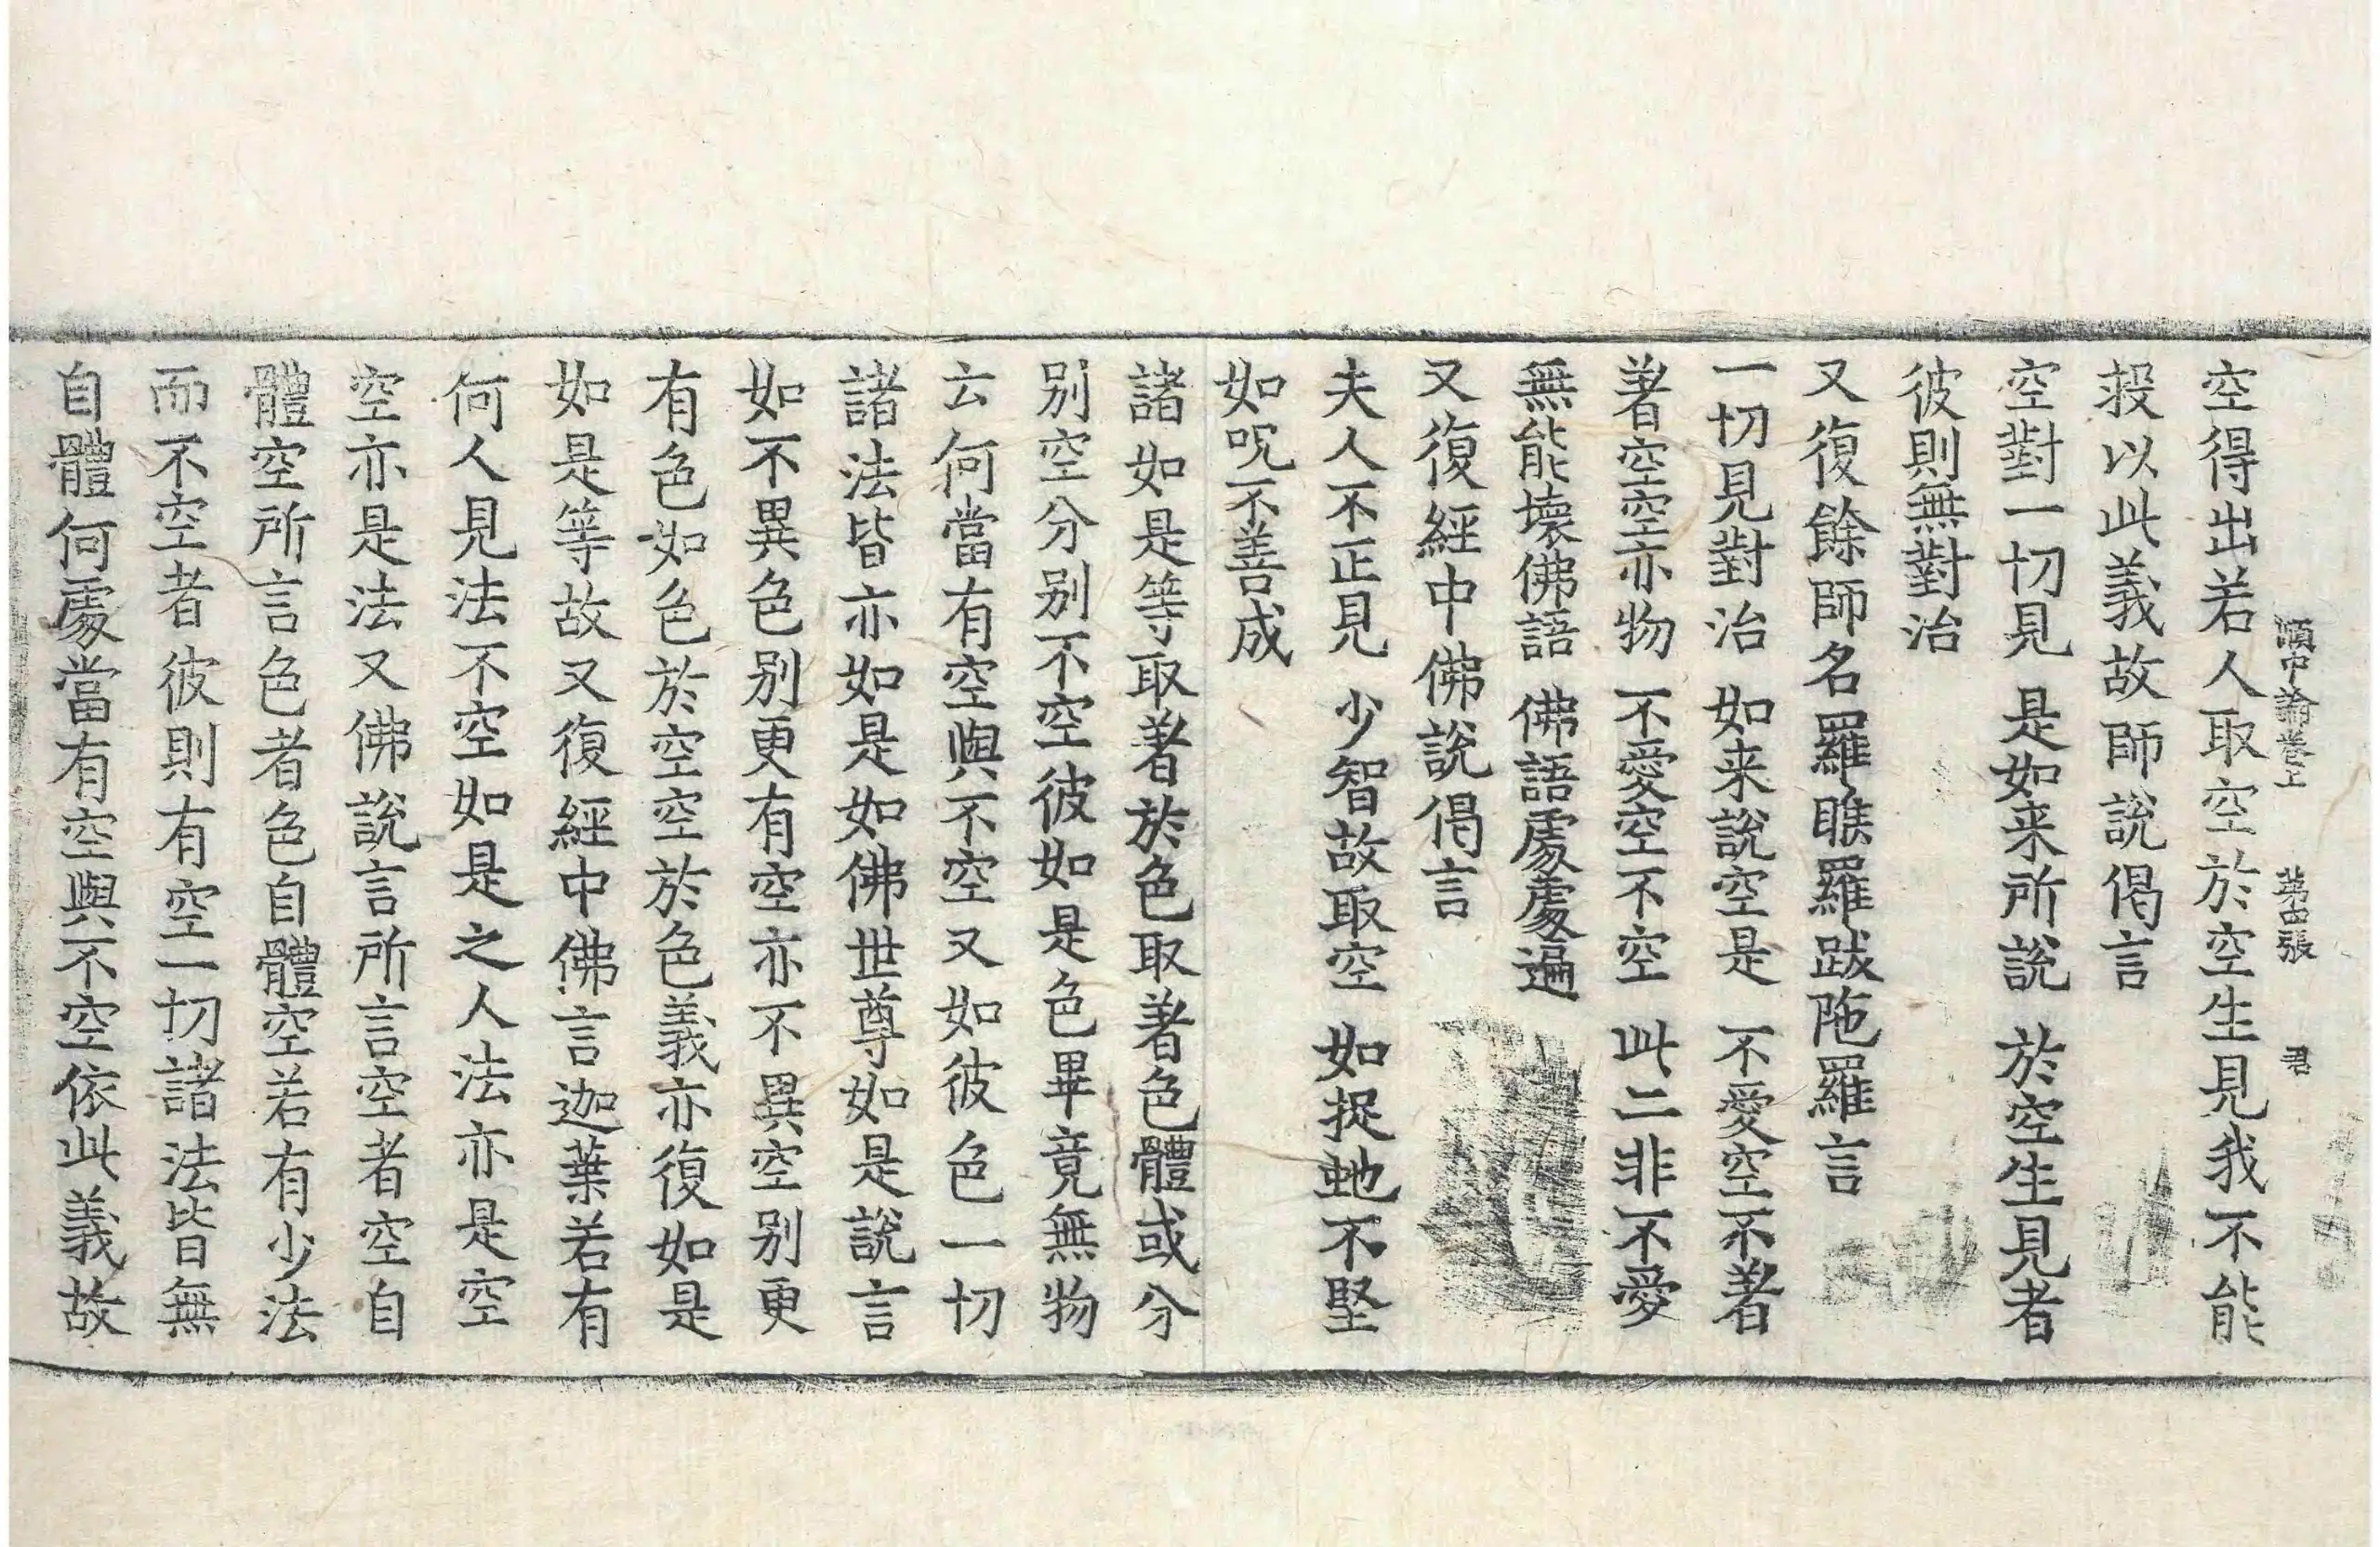 順中論卷上 第四張 君
空得出若人取空於空生見我不能
投以此義故師說偈言
空對一切見 是如来所說 於空生見者
彼則無對治
又復餘師名羅睺羅跋陁羅言
一切見對治 如来說空是 不愛空不著
著空空亦物 不愛空不空 此二非不愛
無能壞佛語 佛語處處遍
又復經中佛說偈言
夫人不正見 少智故取空 如捉虵不堅
如呪不善成
諸如是等取著於色取著色體或分
別空分別不空彼如是色畢竟無物
云何當有空與不空又如彼色一切
諸法皆亦如是如佛世尊如是說言
如不異色別更有空亦不異空別更
有色如色於空空於色義亦復如是
如是等故又復經中佛言迦葉若有
何人見法不空如是之人法亦是空
空亦是法又佛說言所言空者空自
體空所言色者色自體空若有少法
而不空者彼則有空一切諸法皆無
自體何處當有空與不空依此義故